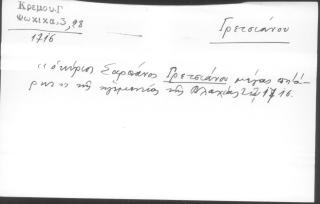 Κρεμου. Γ
Ψωχικα, 3, 98
1716
Γρετσιάνου
"ὁ κύριος Σαρπάνος Γρετσιάνου μέγας
της ηγεμονίας της Βλαχίας 1716.